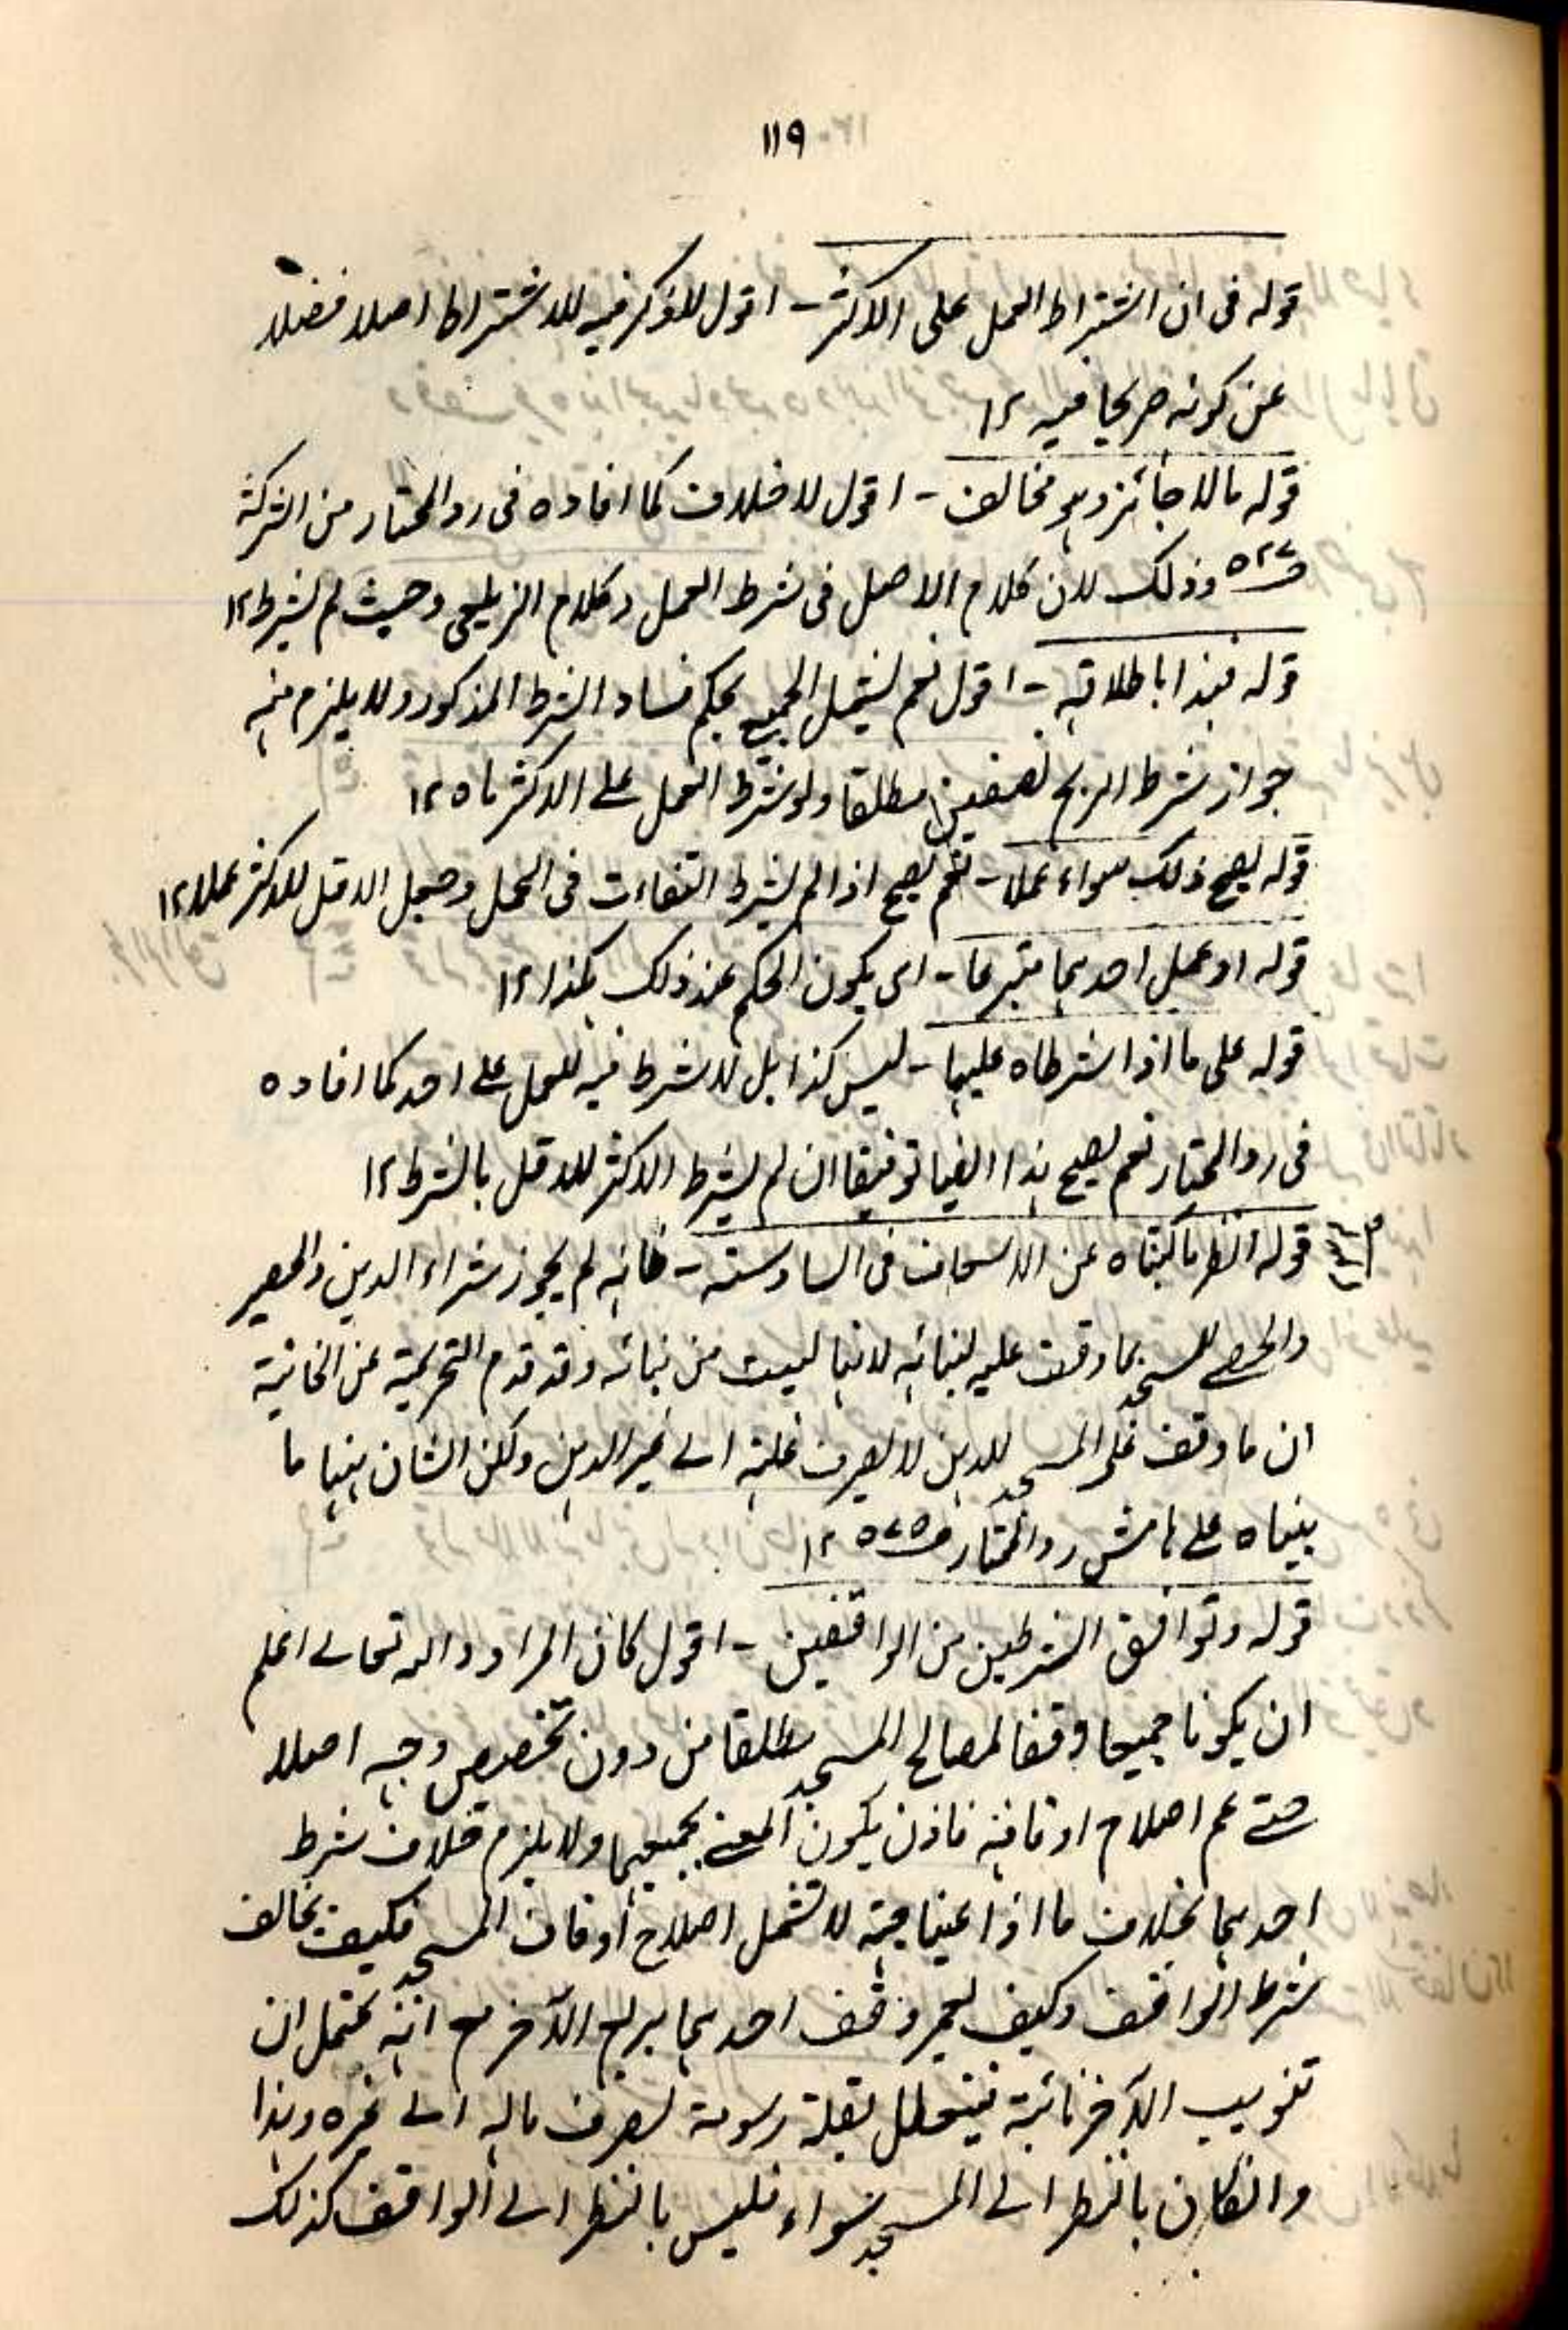 ١١٩
قوله فى ان اشتراط العمل على الاكثر - اقول لا ذكر فيه للاشتراط اصلا فضلا
عن كونه صريحا فيه ١٢
قوله مالا جائز وهو مخالف - اقول لا خلاف كما افاده فى رد المحتار من الشركة
ص٥٢٧ وذلك لان كلام الاصل فى شرط العمل وكلام الزيلعى وحيث لم يشرط ١٢
قوله فهذا باطلاقه - اقول نعم يشمل الجميع بحكم فساد الشرط المذكور ولا يلزم منه
جواز شرط الربح نصفين مطلقا ولو شرط العمل على الاكثر مالا ١٢
قوله يصح ذلك سواء عملا - نعم يصح اذا لم يشرط التفاوت فى العمل وجعل الاقل للاكثر عملا ١٢
قوله او عمل احدهما متبرعا - اى يكون الحكم عند ذلك هكذا ١٢
قوله على ما اذا اشترطاه عليهما - ليس كذا بل لا شرط فيه للعمل على احد كما افاده
فى رد المحتار نعم يصح هذا ايضا توفيقا ان لم يشرط الاكثر للاقل بالشرط ١٢
قوله انظر ما كتبناه عن الاسعاف فى السادسة - فانه لم يجوز شراء الدهن والحصير
والحصى للمسجد بما وقف عليه لبنائه لانها ليست من بنائه وقد قدم التحريمة عن الخانية
ان ما وقف على المسجد للدهن لا يصرف غلته الى غير الدهن ولكن الشان هنها ما
بيناه على هامش رد المحتار ص٥٧٥ ١٢
قوله وتوافق الشرطين من الواقفين - اقول كان المراد والله تعالى اعلم
ان يكونا جميعا وقفا لمصالح المسجد مطلقا من دون تخصيص وجه اصلا
حتى عم اصلاح اوقافه فاذن يكون المعنى بجميعهما ولا يلزم خلاف شرط
احدهما بخلاف ما اذا عينا جهة لا تشمل اصلاح أوقاف المسجد فكيف يخالف
شرط الواقف وكيف يعمر وقف احدهما بريع الآخر مع انه يحتمل ان
تنويب الآخر نائبة فيتعلل بقلة رسومه لصرف ماله الى غيره وهذا
وان كان بالنظر الى المسجد سواء فليس بالنظر الى الواقف كذلك